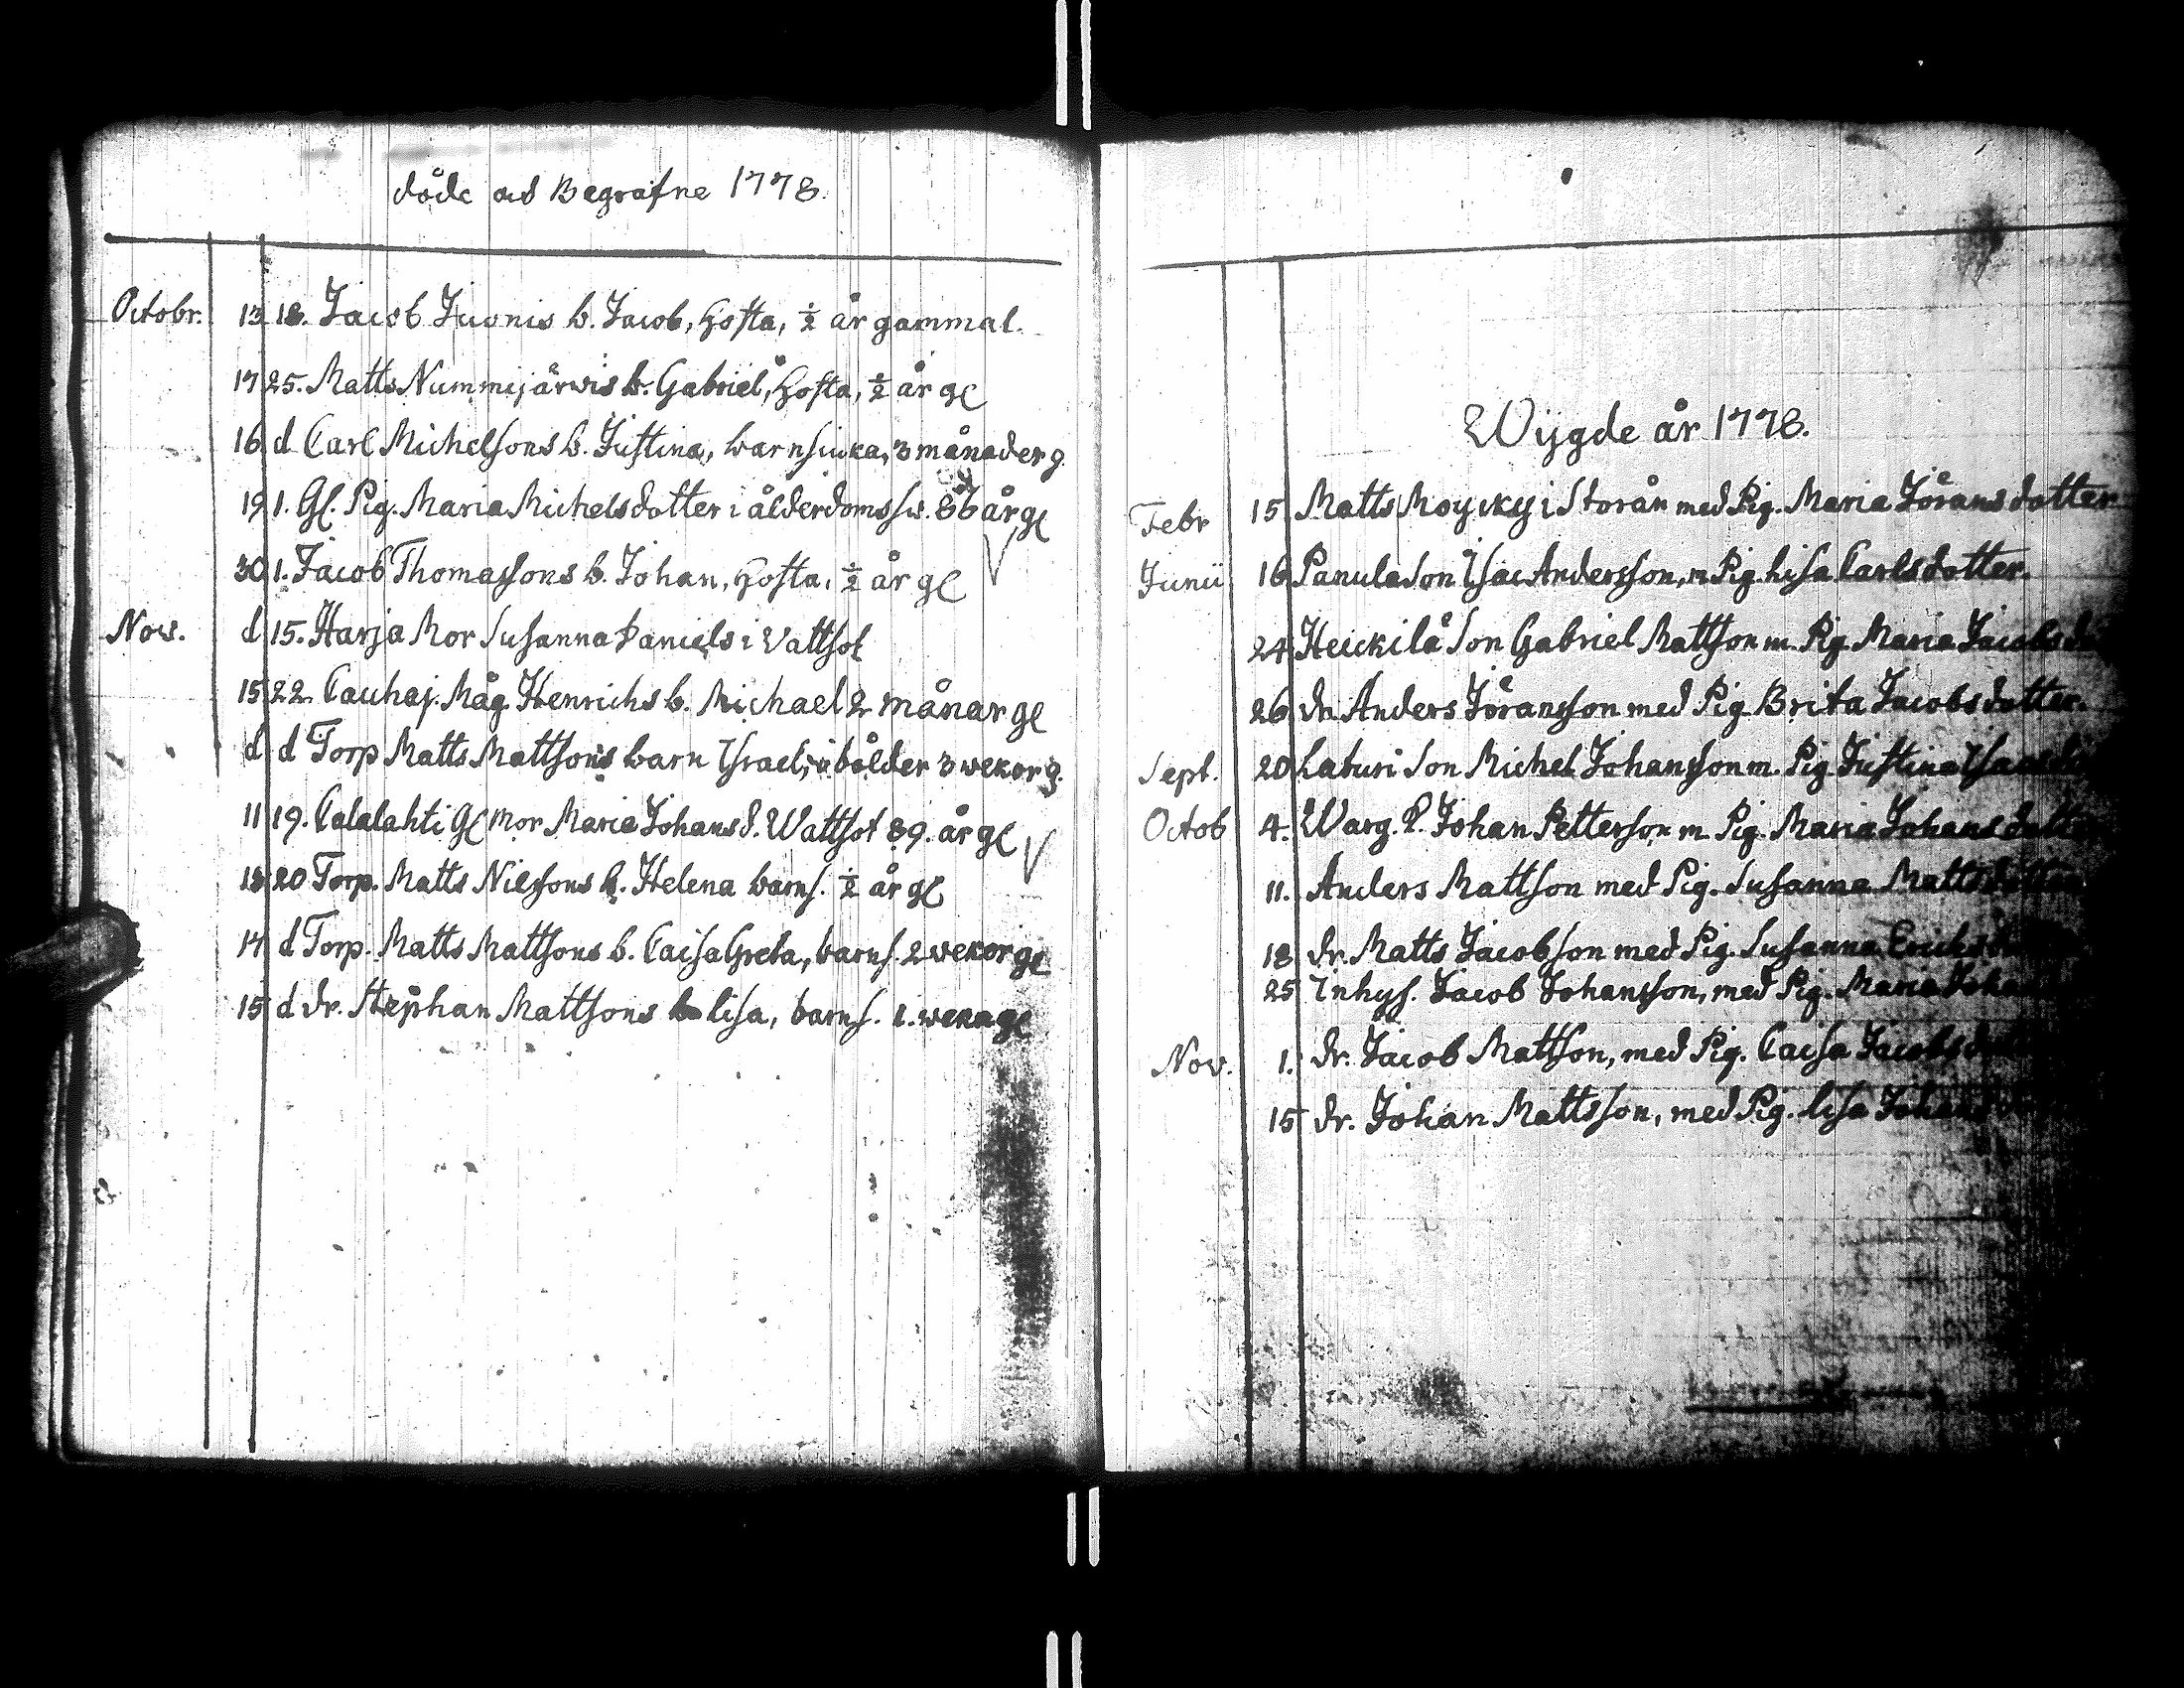 döde och Begrafne 1778.
Octobr. 13 18. Jacob Juonis b. Jacob, Hosta, ½ år gammal.
17 25. Matts Nummijärwis b. Gabriel, Hosta, ½ år gl
16 d Carl Michelsons b. Justina, barnsiuka, 3 månader g
19 1. Gl. Pig. Maria Michelsdotter i ålderdoms sw. 86 år gl
30 1. Jacob Thomassons b. Johan, Hosta, ½ år gl
Nov. d 15. Harja Mor Susanna Daniels i Vattsot
15 22 Cauhaj. Måg Henrichs b. Michael 2 månar gl
d d Torp Matts Mattsons barn Israel, i bålder 3 wekor g.
11 19. Calalahti Gl Mor Maria Johans d. Wattsot 89. år gl
18 20 Torp. Matts Nilssons b. Helena barns. ½ år gl
14 d Torp. Matts Mattsons b. Caisa Greta, barns. 2 wekor gl
15 d dr. Stephan Mattsons b lisa, barns. 1. weka gl
Wijgde år 1778.
Febr 15 Matts Moycky i Storån med Pig. Maria Jöransdotter
Junii 16 Panula Son Isac Andersson, m Pig. Lisa Carlsdotter.
24 Heickilä Son Gabriel Mattson m. Pig. Maria Jacobs
26 dr. Anders Jöransson med Pig Brita Jacobsdotter.
Sept. 20 Laturi Son Michel Johansson m. Pig Justina Isaacs
Octob 4. Warg. P. Johan Petterson m. Pig. Maria Johansdott
11. Anders Mattson med Pig. Susanna Mattsdotter
18 dr. Matts Jacobsson med Pig. Susanna Ericks
25 Inhys. Jacob Johansson, med Pig. Maria Joha
Nov. 1. dr. Jacob Mattson, med Pig. Caisa Jacobs
15 dr. Johan Mattsson, med Pig. lisa Johans